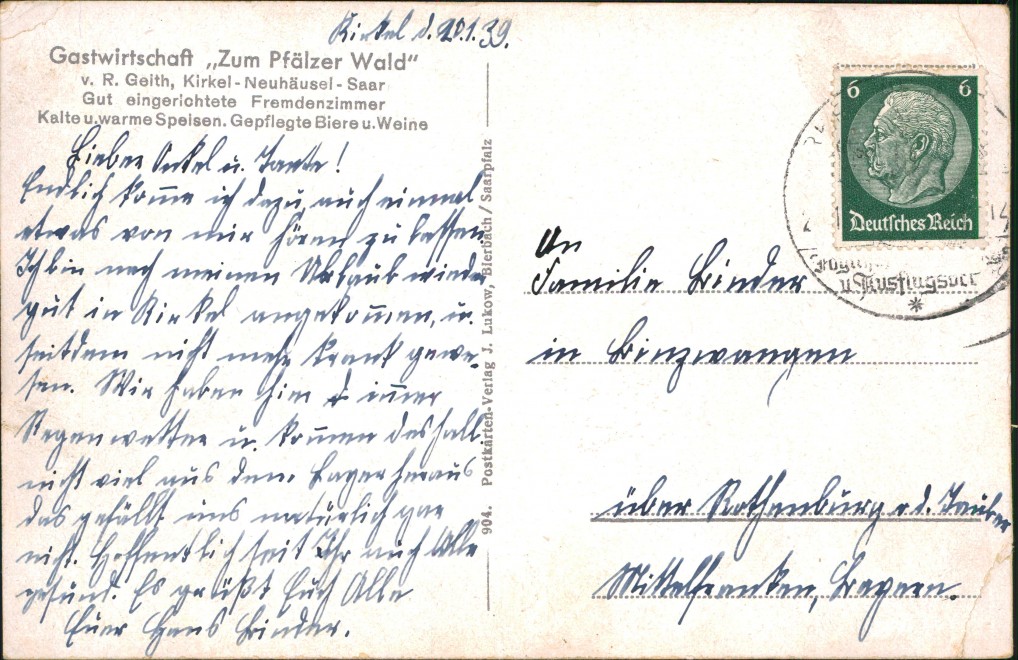 Kirkel d. 20.1.39.
Gastwirtschaft „Zum Pfälzer Wald“
v. R. Geith, Kirkel-Neuhäusel-Saar
Gut eingerichtete Fremdenzimmer
Kalte u. warme Speisen. Gepflegte Biere u. Weine
Lieber Onkel u. Tante!
Endlich komme ich dazu, auch einmal
etwas von mir hören zu lassen.
Ich bin nach meinen Urlaub wieder
gut in Kirkel angekommen, u.
seitdem nicht mehr krank gewe-
sen. Wir haben hier immer
Regenwetter u. kommen deshalb
nicht viel aus dem Lager heraus
das gefällt uns natürlich gar
nicht. Hoffentlich seit Ihr auch Alle
gesund. Es grüßt Euch Alle
Euer Hans Binder.
904. Postkarten-Verlag J. Lukow, Bierbach / Saarpfalz
6 6
Deutsches Reich
u. Ausflugsort
An
Familie Binder
in Binzwangen
über Rothenburg o. d. Tauber
Mittelfranken, Bayern.